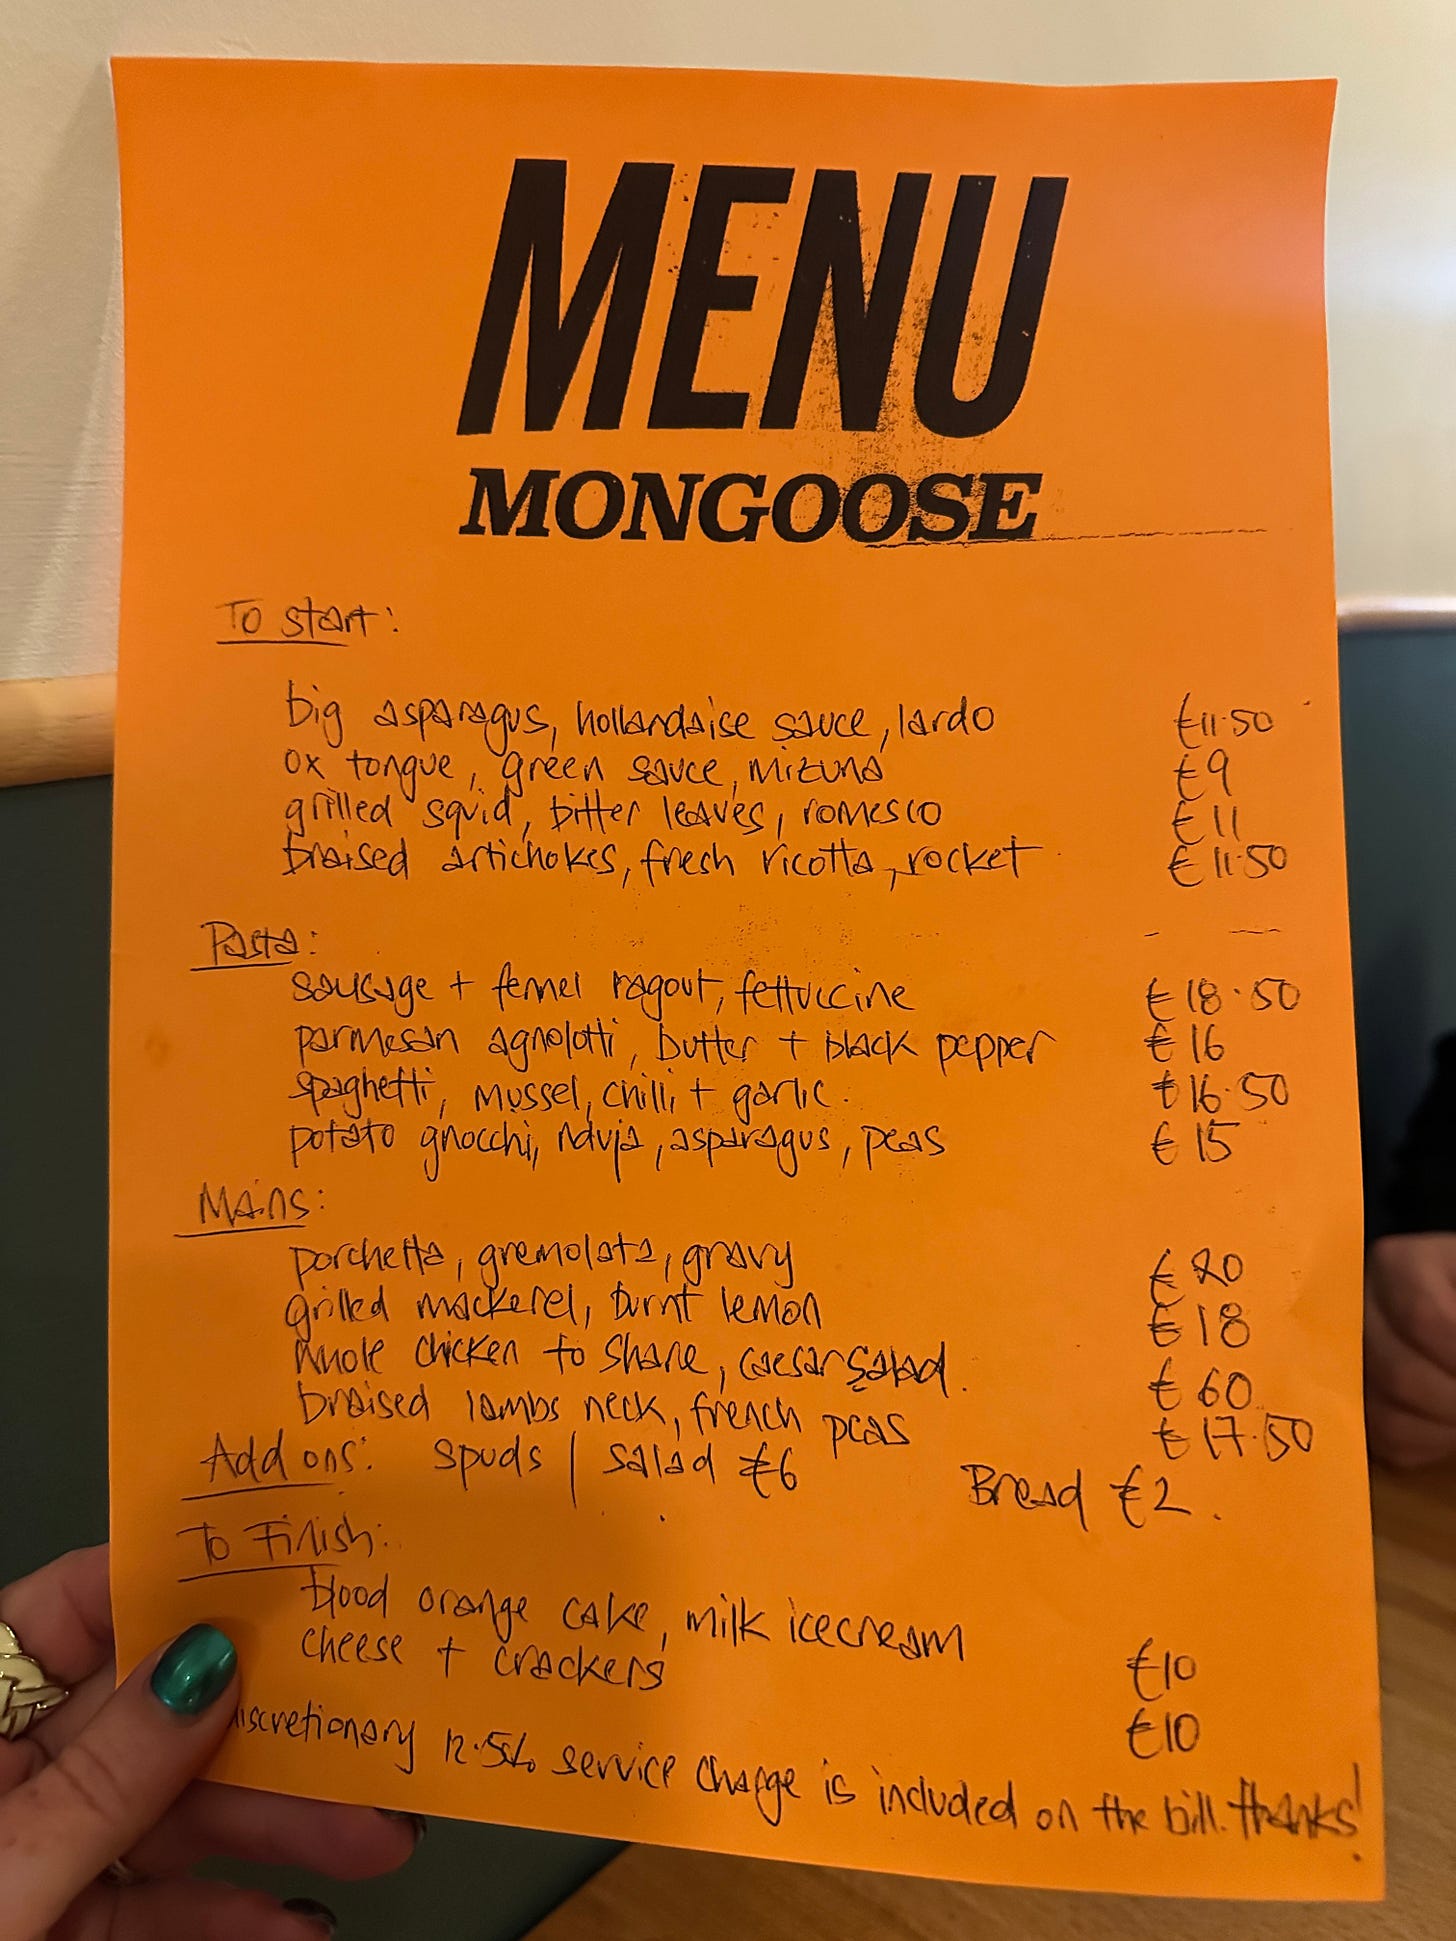 MENU
MONGOOSE
To start:
big asparagus, hollandaise sauce, lardo €11.50
ox tongue, green sauce, mizuna €9
grilled squid, bitter leaves, romesco €11
braised artichokes, fresh ricotta, rocket €11.50
Pasta:
sausage + fennel ragout, fettuccine €18.50
parmesan agnolotti, butter + black pepper €16
spaghetti, mussel, chilli + garlic. €16.50
potato gnocchi, nduja, asparagus, peas €15
Mains:
porchetta, gremolata, gravy €20
grilled mackerel, burnt lemon €18
whole chicken to share, caesar salad. €60
braised lambs neck, french peas €17.50
Add ons: spuds / salad €6 Bread €2.
To Finish:
blood orange cake, milk icecream €10
cheese + crackers €10
discretionary 12.5% service charge is included on the bill. thanks!